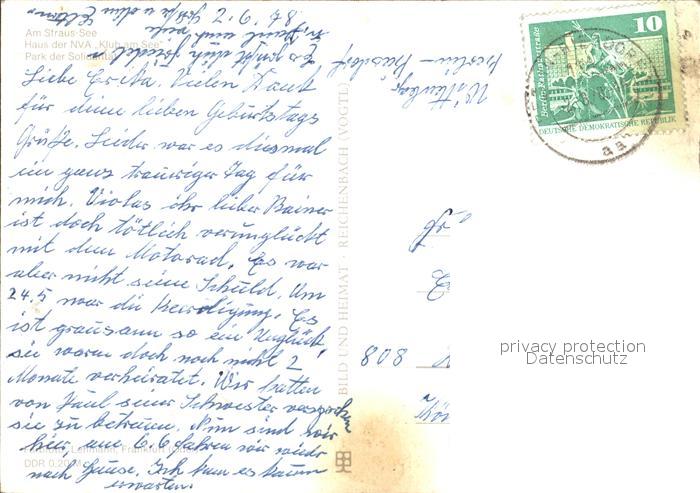 Am Straus-See
Haus der NVA „Klub am See"
Park der Solidarität
Liebe Erika. Vielen Dank
für deine lieben Geburtstags
Grüße. Leider war es diesmal
ein ganz trauriger Tag für
mich. Violas ihr lieber Rainer
ist doch tötlich verunglückt
mit dem Motorad. Es war
aber nicht seine Schuld. Am
24.5 war die Beerdigung. Es
ist grausam so ein Unglück
sie waren doch noch nicht 2
Monate verheiratet. Wir hatten
von Paul seiner Schwester versprochen
sie zu betreuen. Nun sind wir
hier, am 6.6 fahren wir wieder
nach Hause. Ich kann es kaum
erwarten.
Es grüßt dich
Lehmann, Frankfurt
DDR 0,20 M
BILD UND HEIMAT · REICHENBACH (VOGTL)
10
Berlin, Rathausstraße
DEUTSCHE DEMOKRATISCHE REPUBLIK
aa
Fr
808
privacy protection
Datenschutz